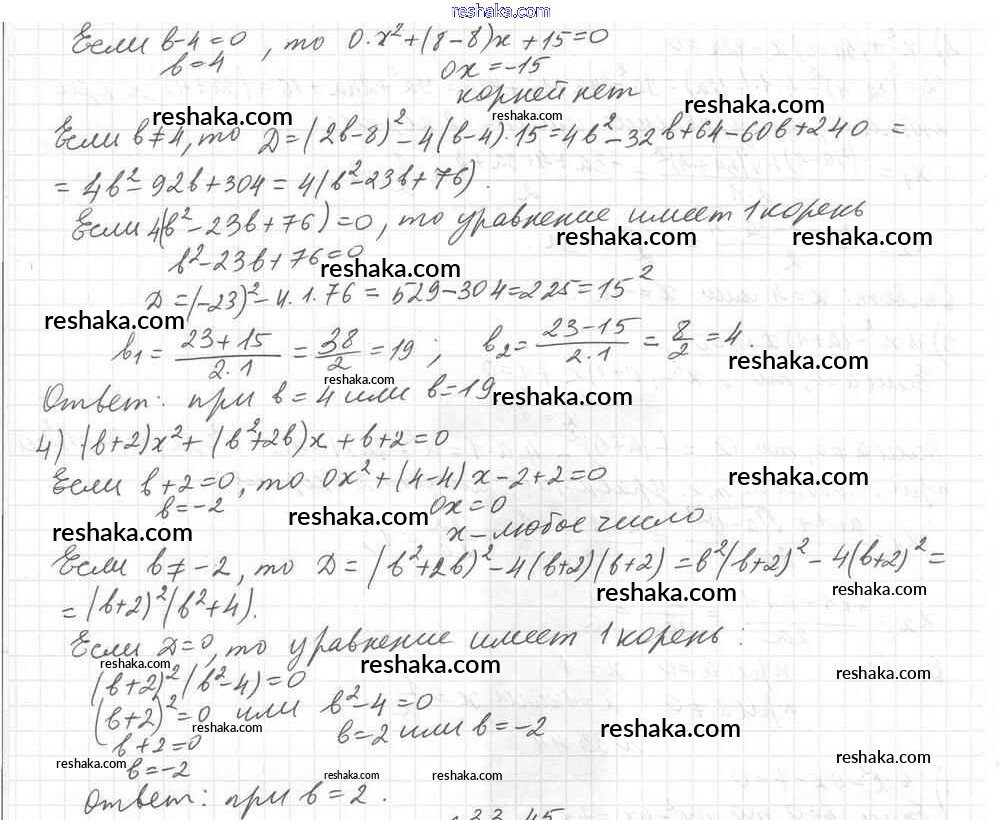 reshaka.com
Если b-4=0, то 0·x²+(8-8)x+15=0
b=4 0x=-15
корней нет
reshaka.com reshaka.com reshaka.com
Если b≠4, то D=(2b-8)²-4(b-4)·15=4b²-32b+64-60b+240=
=4b²-92b+304=4(b²-23b+76).
Если 4(b²-23b+76)=0, то уравнение имеет 1 корень
reshaka.com reshaka.com
b²-23b+76=0
reshaka.com
D=(-23)²-4·1·76=529-304=225=15²
reshaka.com
b₁=23+15/2·1=38/2=19; b₂=23-15/2·1=8/2=4.
reshaka.com reshaka.com
Ответ: при b=4 или b=19
reshaka.com
4) (b+2)x²+(b²+2b)x+b+2=0
Если b+2=0, то 0x²+(4-4)x-2+2=0
reshaka.com
b=-2 0x=0
reshaka.com reshaka.com
x-любое число
Если b≠-2, то D=(b²+2b)²-4(b+2)(b+2)=b²(b+2)²-4(b+2)²=
reshaka.com reshaka.com
=(b+2)²(b²+4).
Если D=0, то уравнение имеет 1 корень:
reshaka.com reshaka.com reshaka.com
(b+2)²(b²-4)=0
(b+2)²=0 или b²-4=0
reshaka.com reshaka.com
b+2=0 b=2 или b=-2
reshaka.com reshaka.com
b=-2
reshaka.com reshaka.com
Ответ: при b=2.